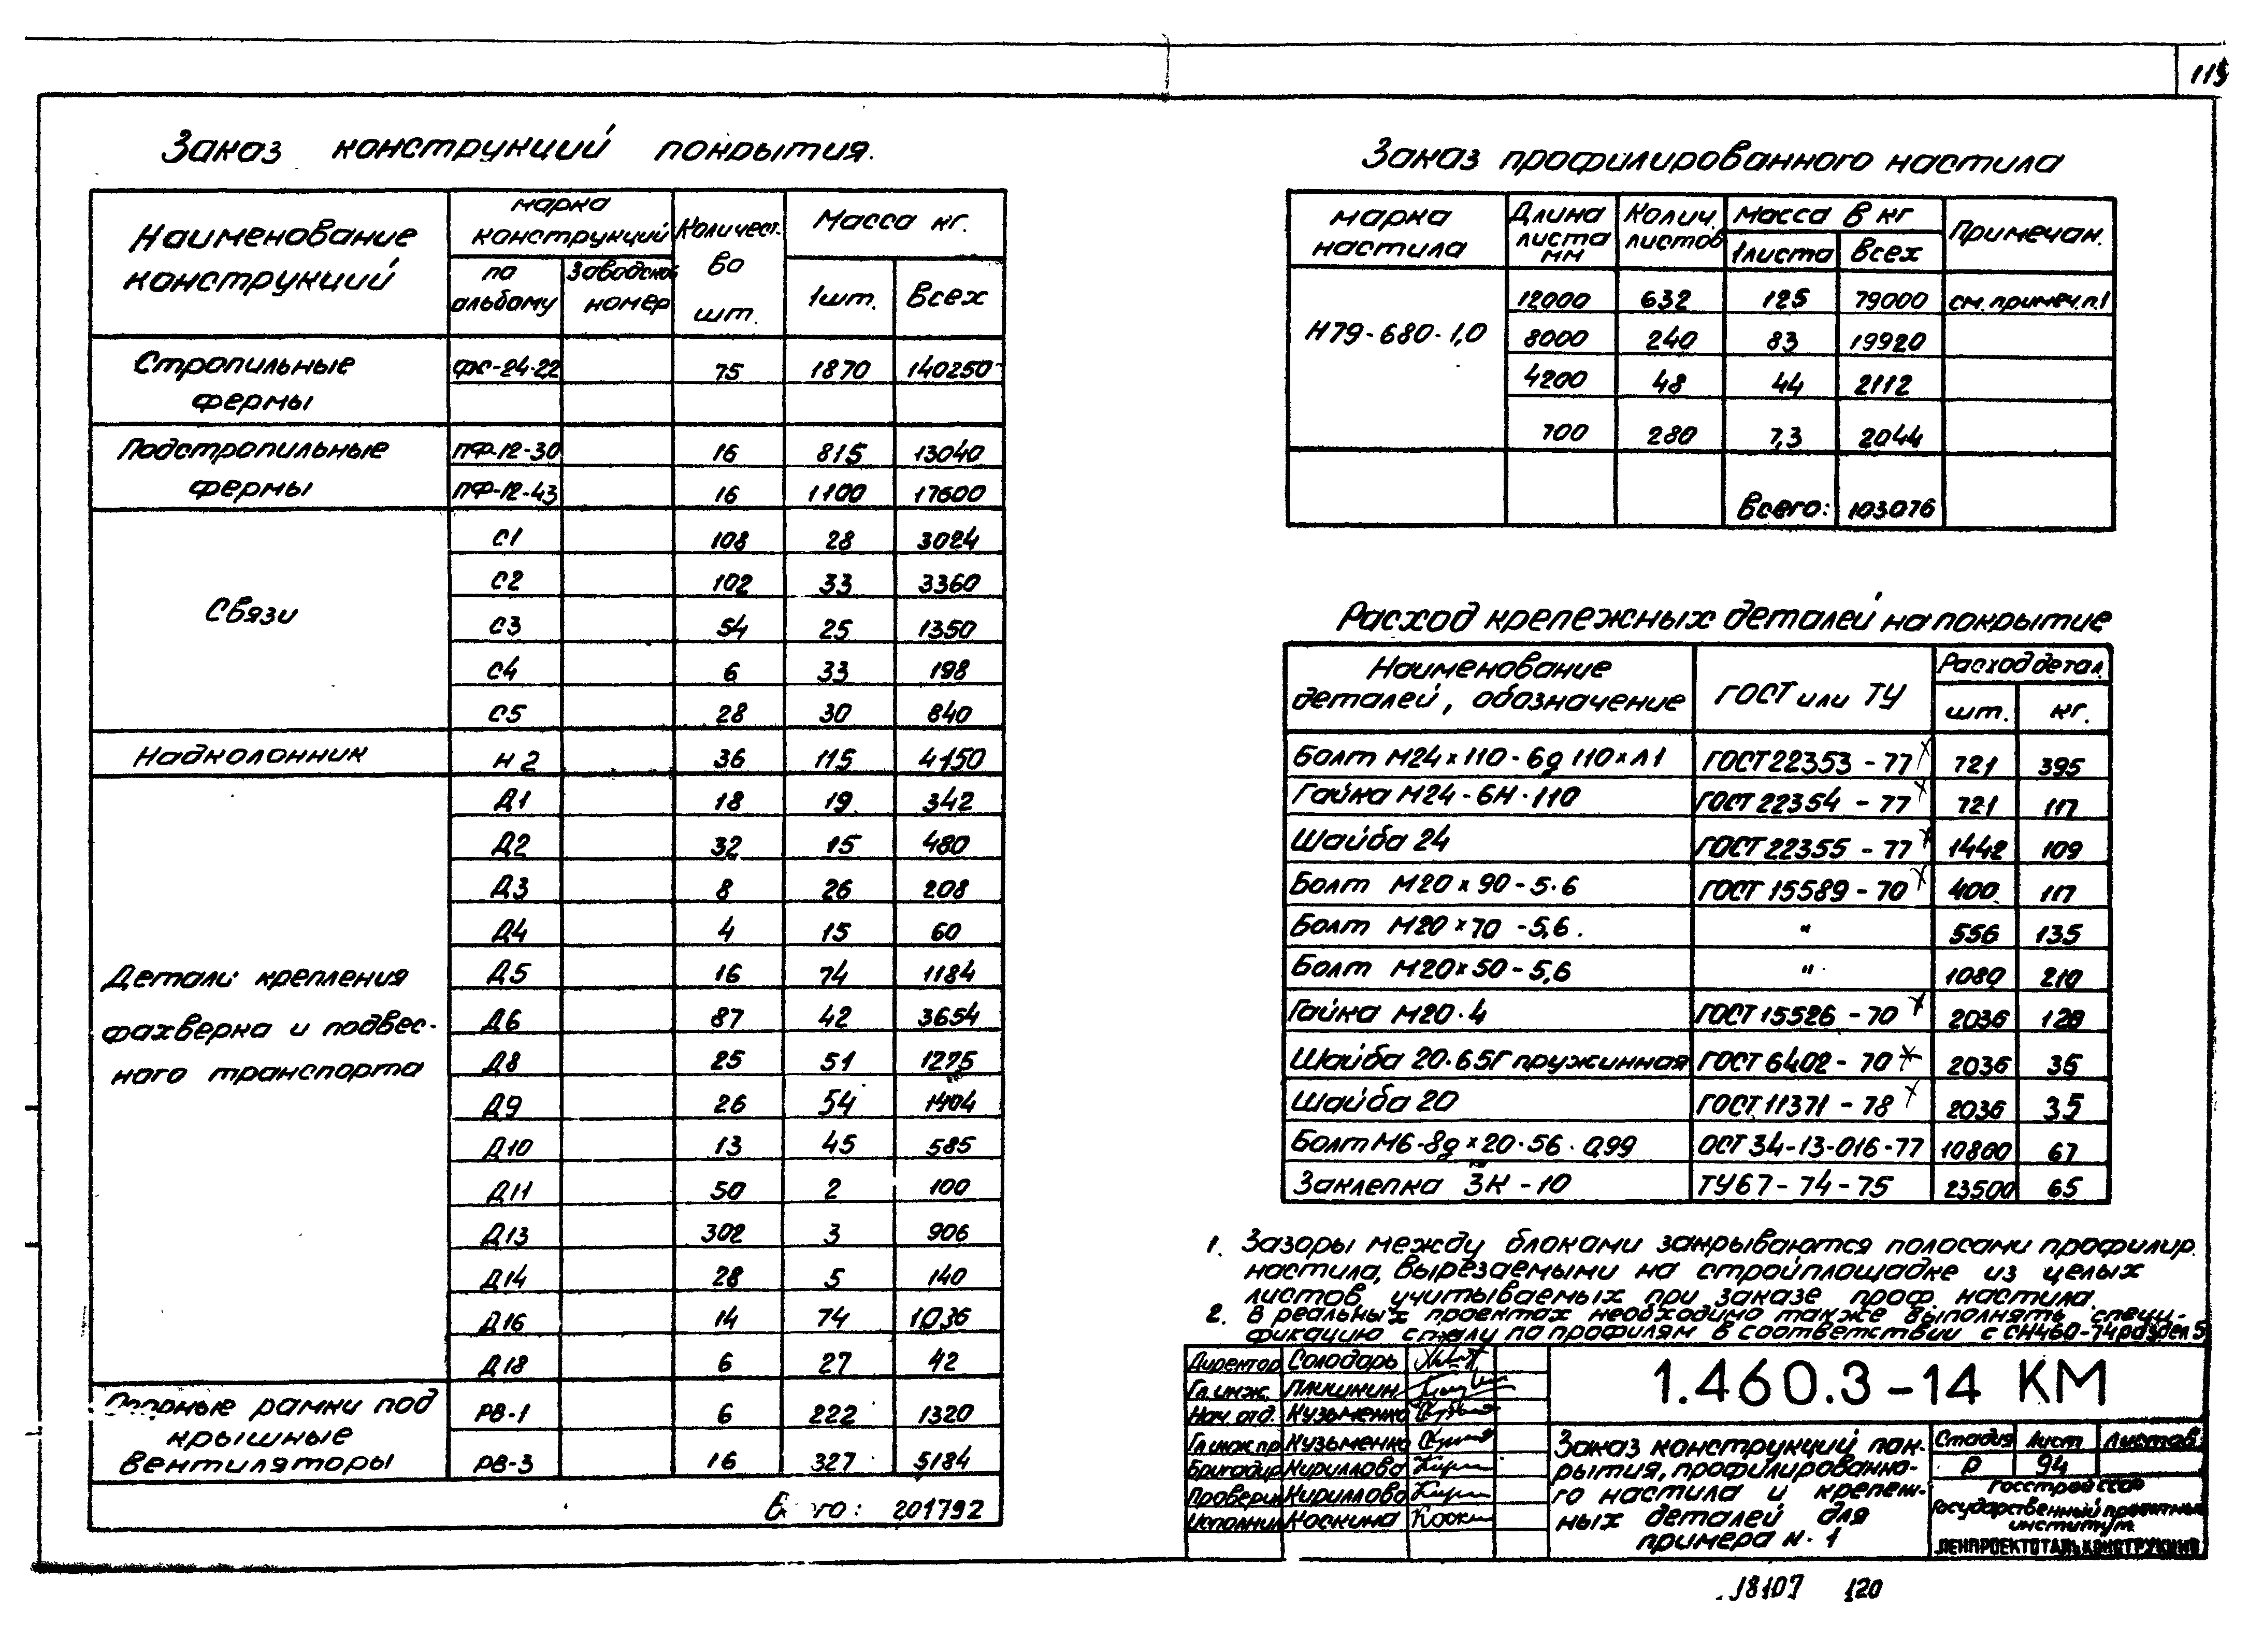 115
Заказ конструкций покрытия.
Наименование конструкций
марка конструкций
по альбому
Заводской номер
Количест-во шт.
Масса кг.
1шт.
Всех
Стропильные фермы
ФС-24-22 75 1870 140250
Подстропильные фермы
ПФ-12-30 16 815 13040
ПФ-12-43 16 1100 17600
Связи
С1 108 28 3024
С2 102 33 3360
С3 54 25 1350
С4 6 33 198
С5 28 30 840
Надколонник Н2 36 115 4150
Детали крепления
фахверка и подвес-
ного транспорта
Д1 18 19 342
Д2 32 15 480
Д3 8 26 208
Д4 4 15 60
Д5 16 74 1184
Д6 87 42 3654
Д8 25 51 1275
Д9 26 54 1404
Д10 13 45 585
Д11 50 2 100
Д13 302 3 906
Д14 28 5 140
Д16 14 74 1036
Д18 6 27 42
Опорные рамки под
крышные
вентиляторы
РВ-1 6 222 1320
РВ-3 16 327 5184
201792
Заказ профилированного настила
марка настила
Длина листа мм
Колич. листов
Масса в кг
1 листа
Всех
Примечан.
Н79-680-1,0
12000 632 125 79000 см. примеч.п.1
8000 240 83 19920
4200 48 44 2112
700 280 7,3 2044
Всего: 103076
Расход крепежных деталей на покрытие
Наименование деталей, обозначение
ГОСТ или ТУ
Расход детал.
шт.
кг.
Болт М24×110-6g 110×Л1 ГОСТ 22353-77× 721 395
Гайка М24-6Н·110 ГОСТ 22354-77× 721 117
Шайба 24 ГОСТ 22355-77× 1442 109
Болт М20×90-5.6 ГОСТ 15589-70× 400 117
Болт М20×70-5,6. " 556 135
Болт М20×50-5,6 " 1080 210
Гайка М20·4 ГОСТ 15526-70× 2036 128
Шайба 20·65Г пружинная ГОСТ 6402-70× 2036 35
Шайба 20 ГОСТ 11371-78× 2036 35
Болт М6-8g×20·56·0,99 ОСТ 34-13-016-77 10800 67
Заклепка ЗК-10 ТУ67-74-75 23500 65
1. Зазоры между блоками закрываются полосами профилир.
настила, вырезаемыми на стройплощадке из целых
листов, учитываемых при заказе проф. настила.
2. В реальных проектах необходимо также выполнять специ-
фикацию стали по профилям в соответствии с СН460-74 раздел 5
Директор Солодарь
Гл.инж. Плишкин
Нач. отд. Кузьменко
Гл.инж.пр. Кузьменко
Бригадир Кириллова
Проверил Кириллова
Исполнил Коскина
1.460.3-14 КМ
Заказ конструкций пок-
рытия, профилированно-
го настила и крепеж-
ных деталей для
примера №1
Стадия Лист Листов
Р 94
Госстрой СССР
Государственный проектный
институт
ЛЕНПРОЕКТСТАЛЬКОНСТРУКЦИЯ
18107 120